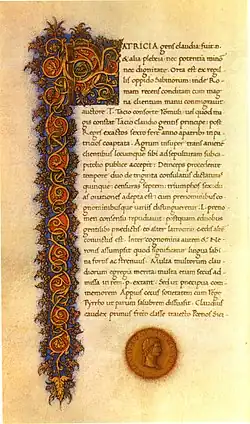 PATRICIA gens claudia: fuit .n.
& alia plebeia: nec potentia mino
nec dignitate · Orta est ex regil
lis oppido Sabinorum: inde Ro-
mam recens conditam cum mag-
na clientium manu commigravit
auctore · T · Tatio consorte Romuli: uel quod ma
gis constat Tatio claudio gentis principe: post
Reges exactos sexto fere anno a patribus in pa-
tricios cooptata · Agrum insuper trans aniene
clientibus locumque sibi ad sepulturam sub ca-
pitolio publice accepit · Deinceps procedente
tempore duo de triginta consulatus dictaturas
quinque: censuras septem: triumphos sex: du-
as orationes adepta est: cum prenominibus co-
gnominibusque uariis distingueretur · L · preno-
men consensu repudiauit: postquam e duobus
gentilibus praeditis eo alter latrocinii caedis alter
conuictus est · Inter cognomina autem & Ne-
ronis assumpsit quo significatur lingua sabi-
na fortis ac strenuus · Multa multorum clau-
diorum egregia merita: multa etiam secus ad-
missa in rem · p · extant · Sed ut precipua com-
memorem · Appius cecus societatem cum rege
Pyrrho ut parum salubrem dissuasit · Claudius
caudex primus freto classe traiecto Poenos